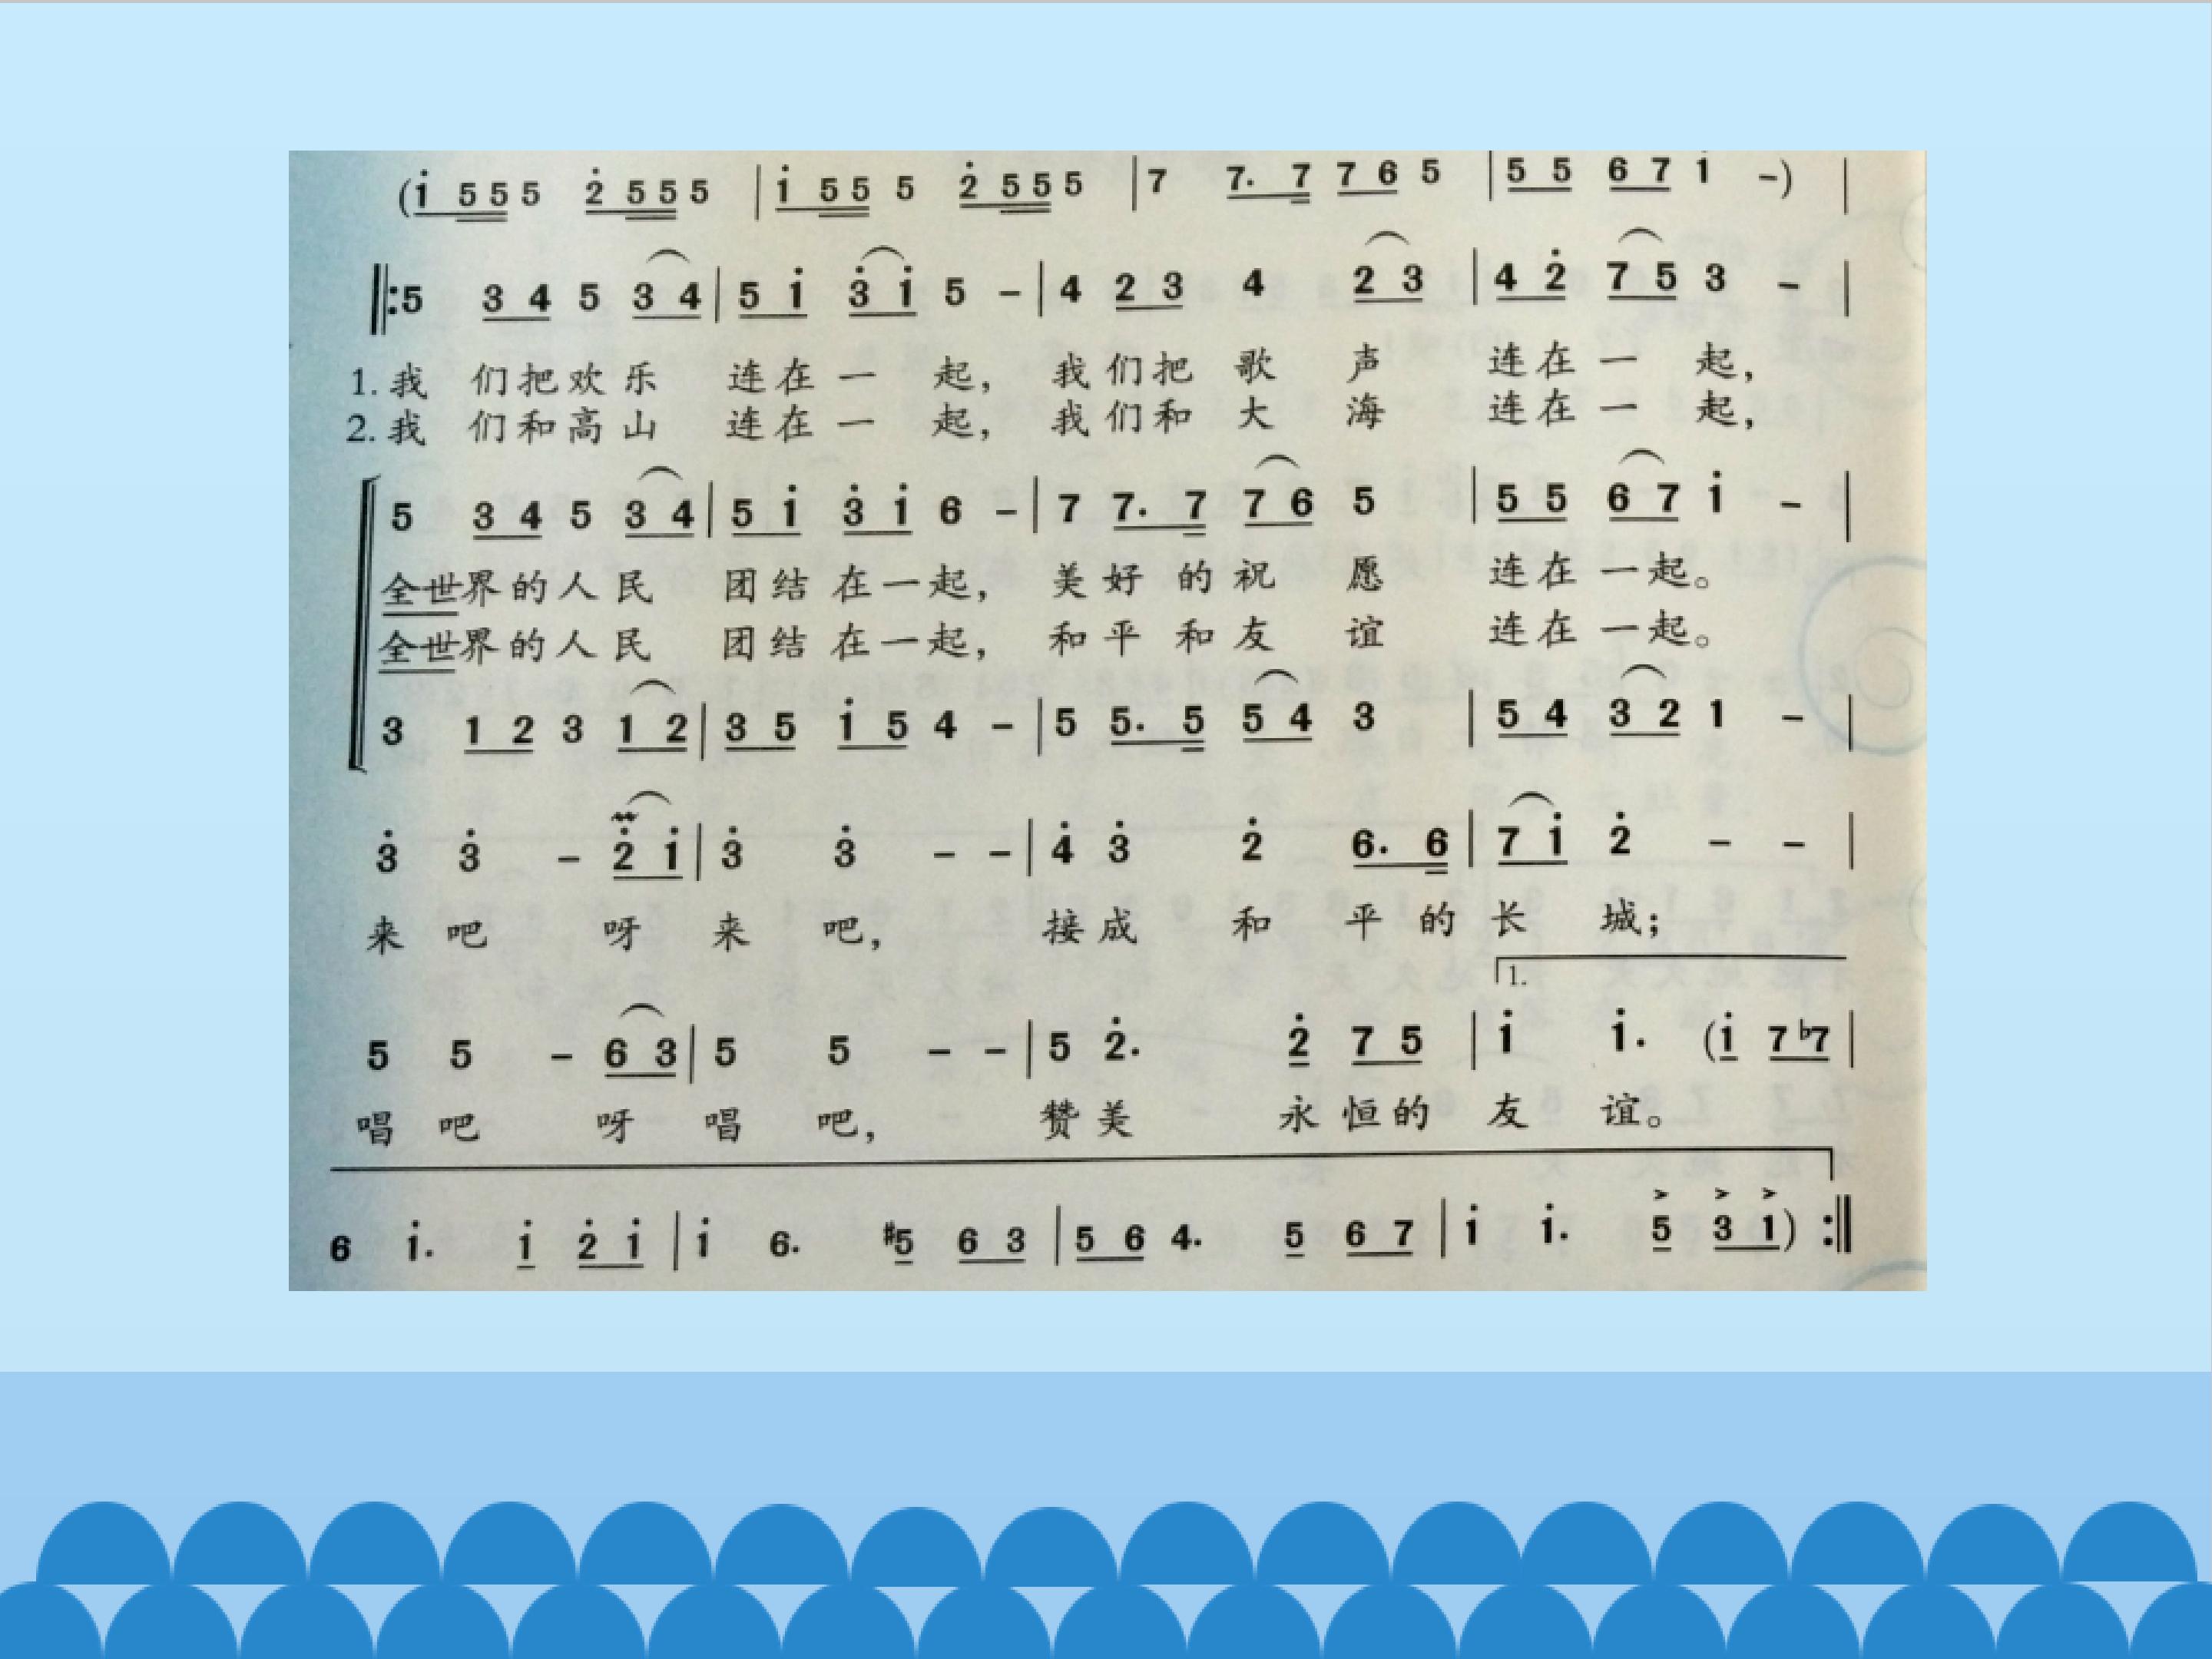 (i 5 5 5 2̇ 5 5 5 | i 5 5 5 2̇ 5 5 5 | 7 7. 7 7 6 5 | 5 5 6 7 i –) |
‖:5 3 4 5 3 4 | 5 i 3̇ i 5 – | 4 2 3 4 2 3 | 4 2̇ 7 5 3 – |
1. 我 们把欢乐 连在一 起， 我们把 歌 声 连在一 起，
2. 我 们和高山 连在一 起， 我们和 大 海 连在一 起，
5 3 4 5 3 4 | 5 i 3̇ i 6 – | 7 7. 7 7 6 5 | 5 5 6 7 i – |
全世界的人民 团结在一起， 美好的祝 愿 连在一起。
全世界的人民 团结在一起， 和平和友 谊 连在一起。
3 1 2 3 1 2 | 3 5 i 5 4 – | 5 5. 5 5 4 3 | 5 4 3 2 1 – |
3̇ 3̇ – 2̇ i | 3̇ 3̇ – – | 4̇ 3̇ 2̇ 6. 6 | 7 i 2̇ – – |
来 吧 呀 来 吧， 接成 和 平 的 长 城；
1.
5 5 – 6 3 | 5 5 – – | 5 2̇. 2̇ 7 5 | i i. (i 7 ♭7 |
唱 吧 呀 唱 吧， 赞美 永恒的 友 谊。
6 i. i 2̇ i | i 6. #5 6 3 | 5 6 4. 5 6 7 | i i. 5 3 1) :‖